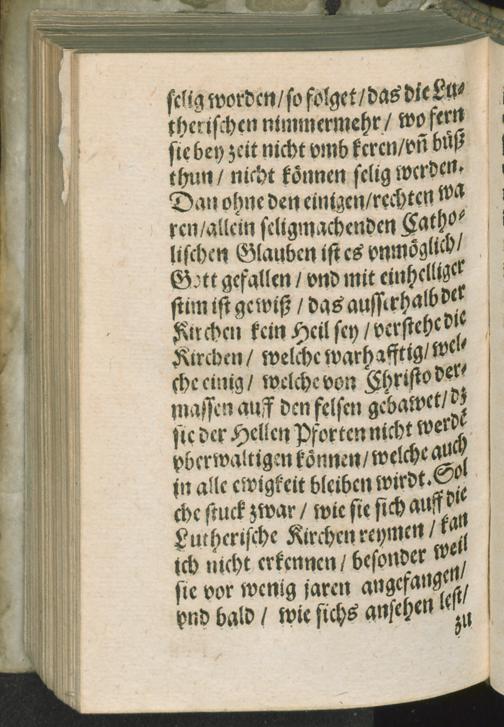 selig worden/ so folget/ das die Lu⸗
therischen nimmermehr/ wo fern
sie bey zeit nicht vmb keren/ vñ büß
thun/ nicht können selig werden.
Dan ohne den einigen/ rechten wa
ren/ allein seligmachenden Catho⸗
lischen Glauben ist es vnmöglich/
Gott gefallen/ vnd mit einhelliger
stim ist gewiß/ das ausserhalb der
Kirchen kein Heil sey/ verstehe die
Kirchen/ welche warhafftig/ wel⸗
che einig/ welche von Christo der⸗
massen auff den felsen gebawet/ dz
sie der Hellen Pforten nicht werdē
vberwaltigen können/ welche auch
in alle ewigkeit bleiben wirdt. Sol
che stuck zwar/ wie sie sich auff die
Lutherische Kirchen reymen/ kan
ich nicht erkennen/ besonder weil
sie vor wenig jaren angefangen/
vnd bald/ wie sichs ansehen lest/
zu